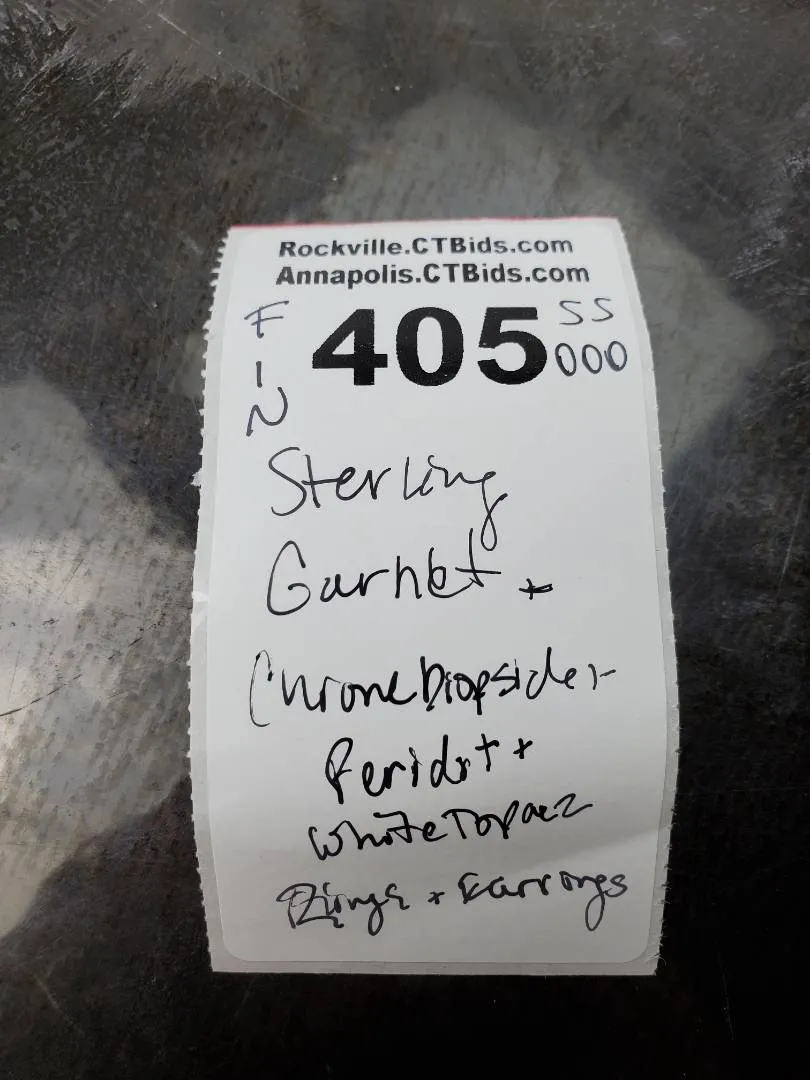 Rockville.CTBids.com
Annapolis.CTBids.com
FIN 405 SS
000
Sterling
Garnet +
Chrome Diopside +
Peridot +
White Topaz
Rings + Earrings